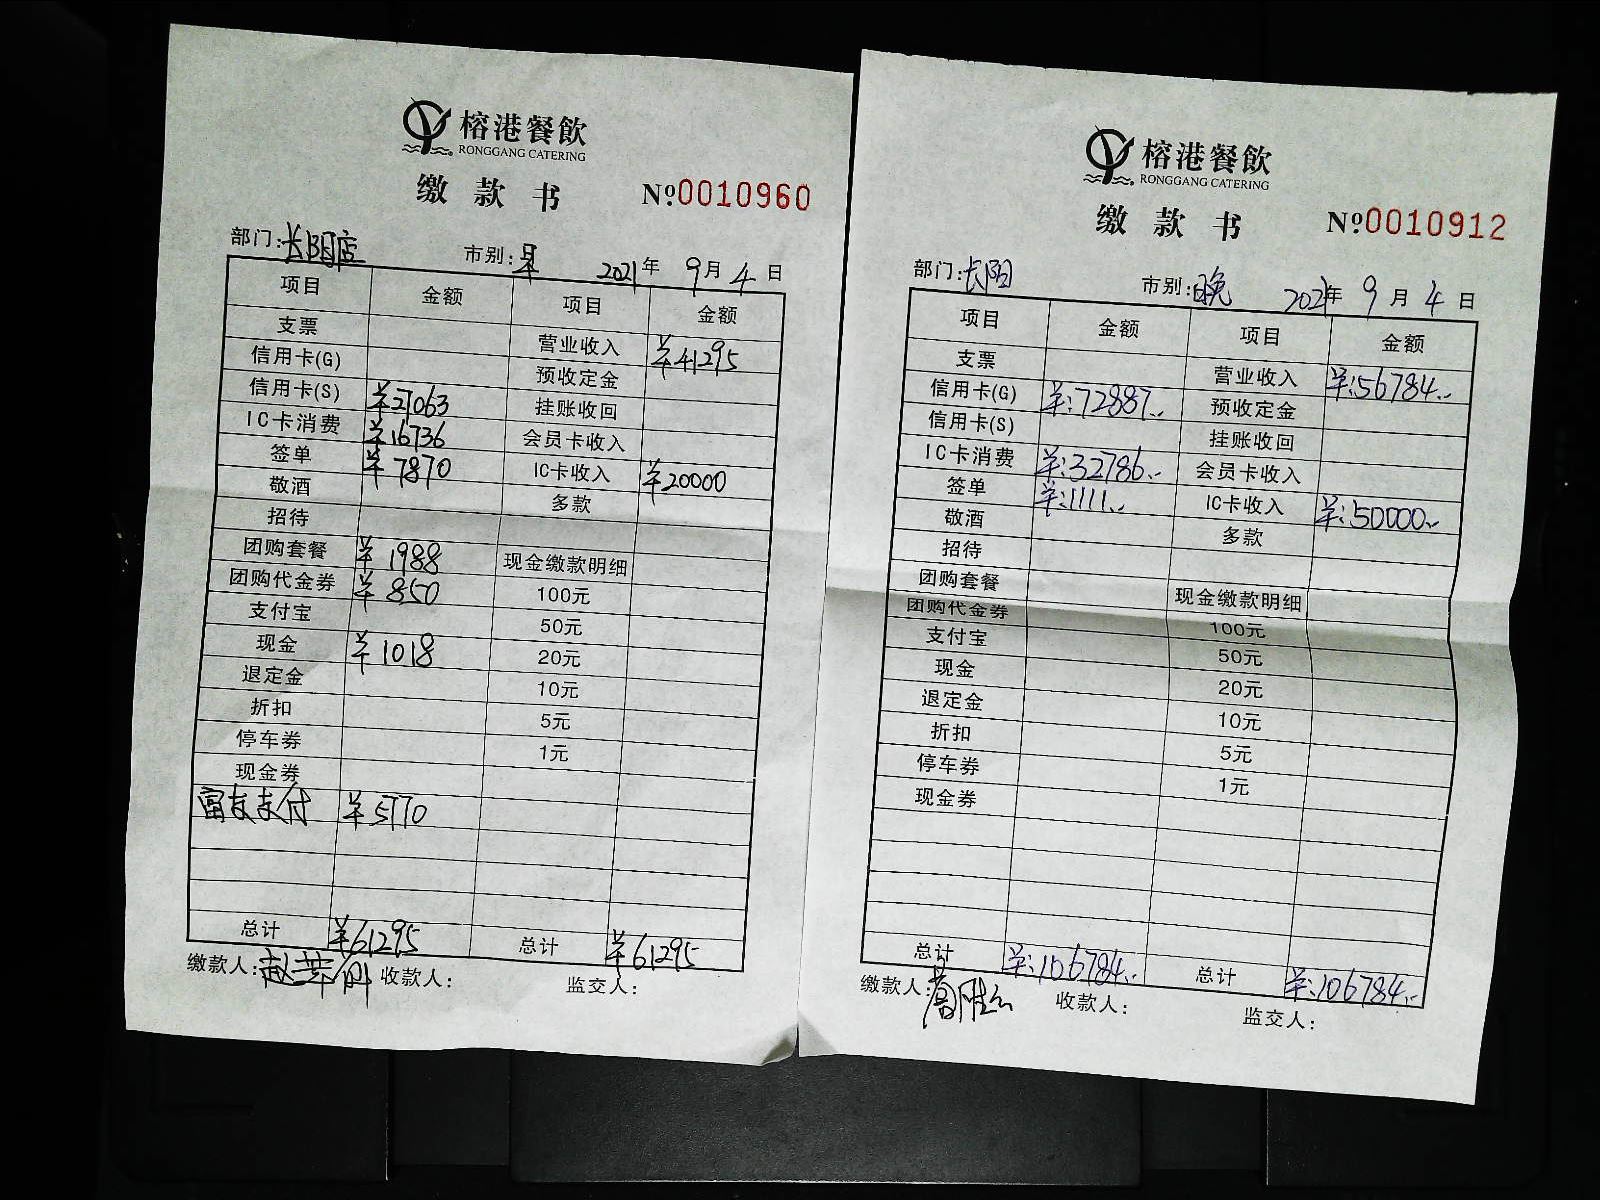 榕港餐飲
RONGGANG CATERING
缴款书 №0010960
部门:长阳店 市别:早 2021年9月4日
项目 金额 项目 金额
支票 营业收入 ¥41295
信用卡(G) 预收定金
信用卡(S) ¥27063 挂账收回
IC卡消费 ¥16736 会员卡收入
签单 ¥7870 IC卡收入 ¥20000
敬酒 多款
招待
团购套餐 ¥1988 现金缴款明细
团购代金券 ¥850 100元
支付宝 50元
现金 ¥1018 20元
退定金 10元
折扣 5元
停车券 1元
现金券
富友支付 ¥5770
总计 ¥61295 总计 ¥61295
缴款人: 收款人: 监交人:
榕港餐飲
RONGGANG CATERING
缴款书 №0010912
部门:长阳 市别:晚 2021年9月4日
项目 金额 项目 金额
支票 营业收入 ¥:56784.-
信用卡(G) ¥:72887.- 预收定金
信用卡(S) 挂账收回
IC卡消费 ¥:32786.- 会员卡收入
签单 ¥:1111.- IC卡收入 ¥:50000.-
敬酒 多款
招待
团购套餐 现金缴款明细
团购代金券 100元
支付宝 50元
现金 20元
退定金 10元
折扣 5元
停车券 1元
现金券
总计 ¥:106784.- 总计 ¥:106784.-
缴款人: 收款人: 监交人: